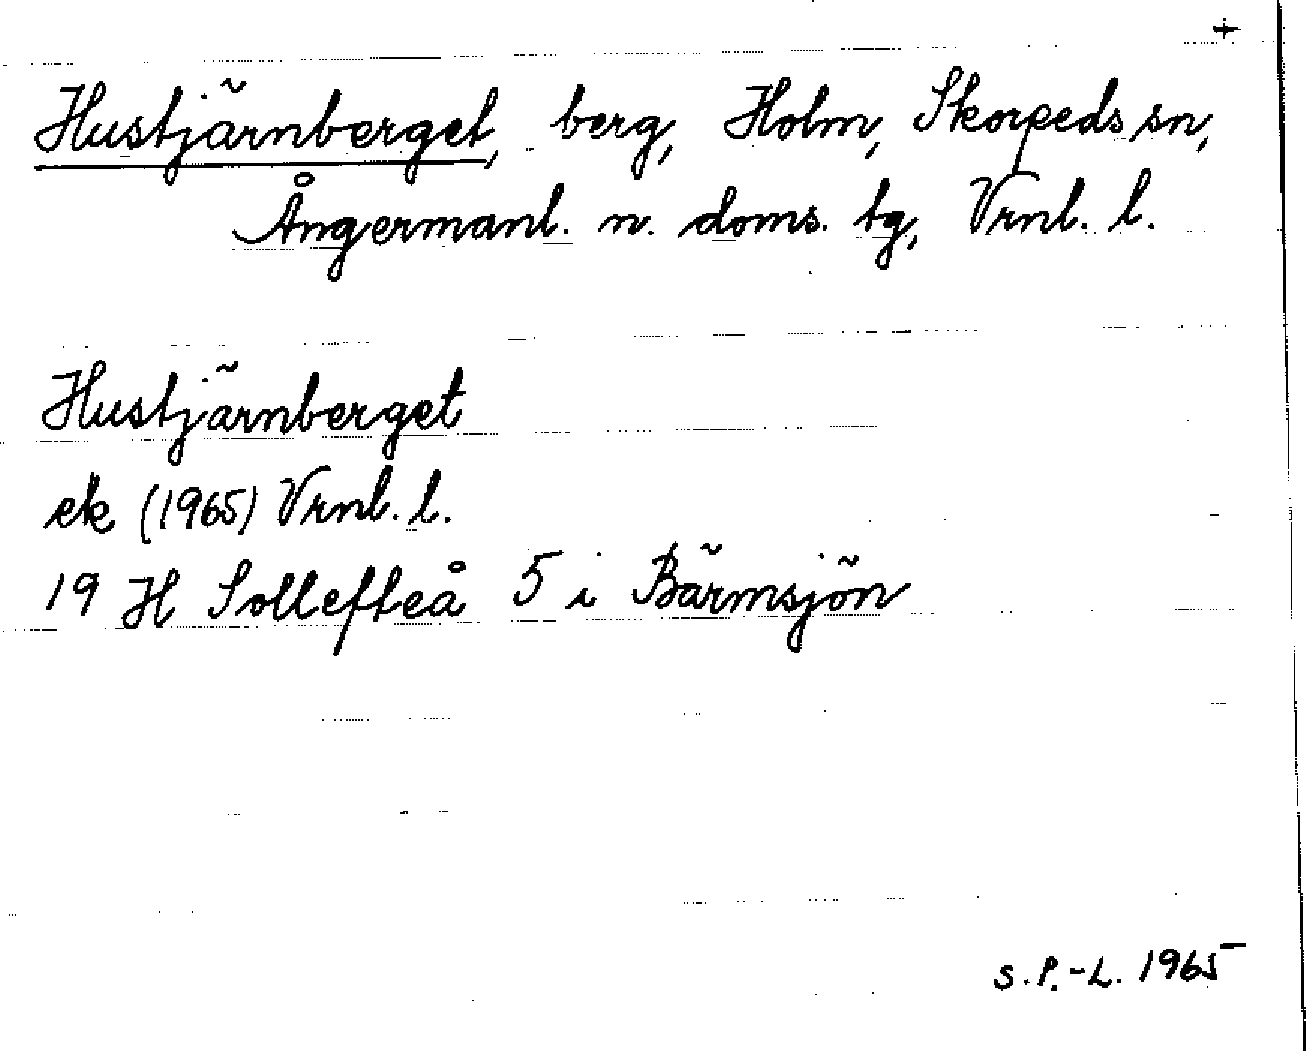 +
Hustjärnberget, berg, Holm, Skorpeds sn,
Ångermanl. n. doms. tg, Vrnl. l.
Hustjärnberget
ek (1965) Vrnl. l.
19 H Sollefteå 5 i Bärmsjön
S. P.-L. 1965